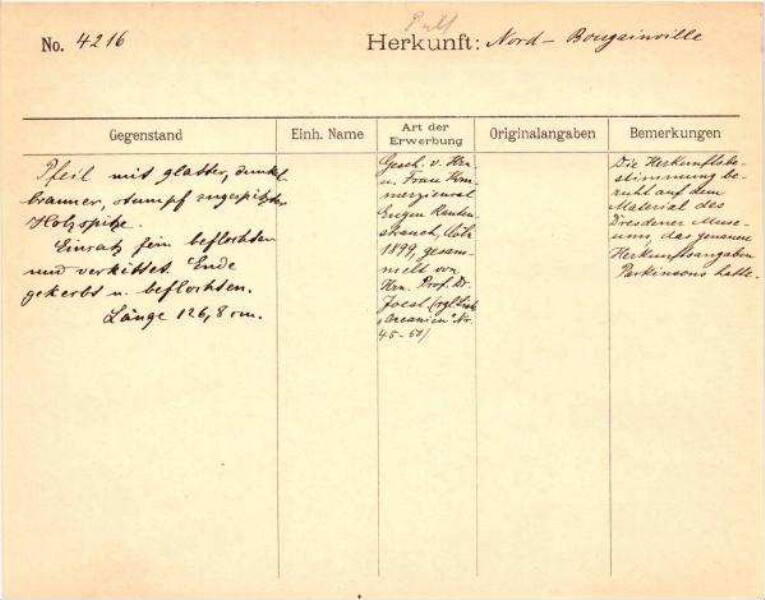 No. 4216
Herkunft: Nord - Bougainville
Gegenstand
Einh. Name
Art der
Erwerbung
Originalangaben
Bemerkungen
Pfeil mit glatter, dunkel
brauner, stumpf zugespitzter
Holzspitze.
Einsatz fein beflochten
und verkittet. Ende
gekerbt u. beflochten.
Länge 126,8 cm.
Gesch. v. Hrn
u. Frau Kom-
merzienrat
Eugen Rauten-
strauch, Cöln
1899, gesam-
melt von
Hrn. Prof. Dr.
Joest (vgl. List
"Oceanien" Nr.
45-51)
Die Herkunftsbe-
stimmung be-
ruht auf dem
Material des
Dresdener Muse-
ums, das genauen
Herkunftsangaben
Parkinsons hatte.